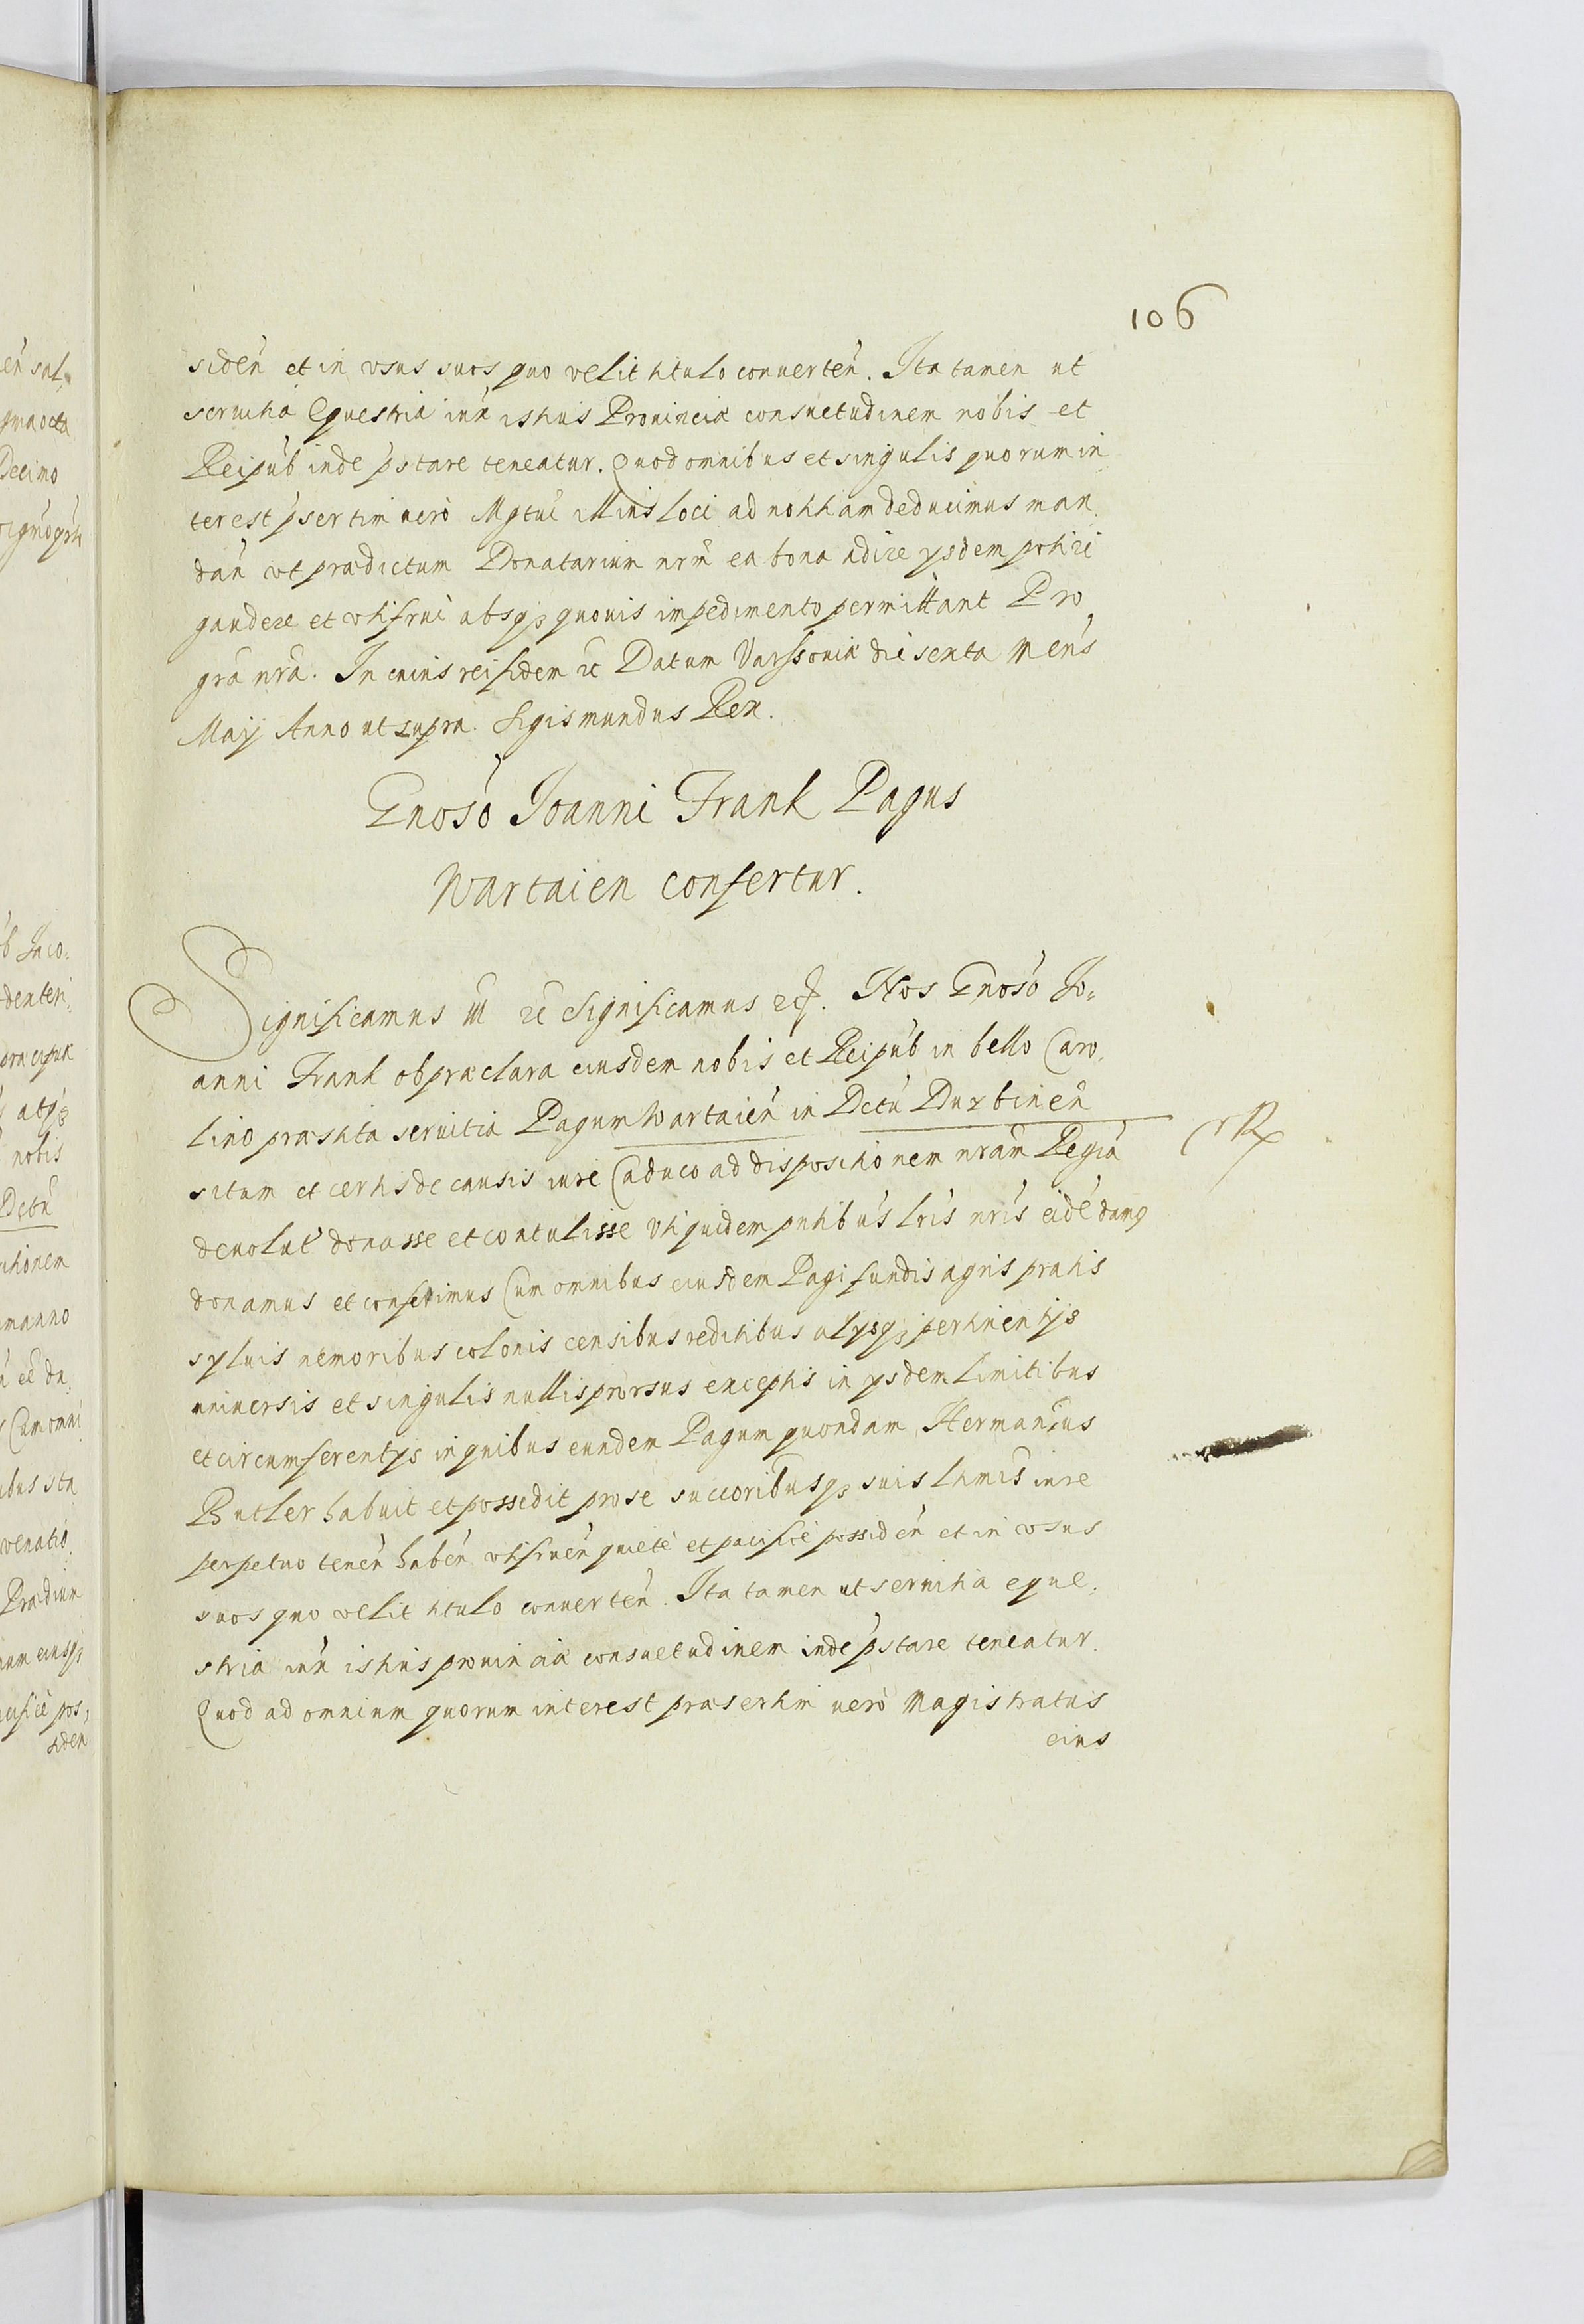 106
siden̄ et in vsus suos quo velit titulo conuerten̄. Ita tamen ut
seruitia Equestria iux̄ istius Prouinciæ consuetudinem nobis et
Reipub̄ inde p̄stare teneatur. Quod omnibus et singulis quorum in
terest p̄sertim uerò Mgtui illius loci ad notitiam deducimus man
dan̄ vt prædictum Donatarium nrm̄ ea bona adire ysdem potiri
gaudere et vtifrui absq₃ quouis impedimento permittant Pro
gra nra. In cuius rei fidem ꝛc Datum Varssouiæ die sexta Mens̄
Maij Anno ut supra. Sigismundus Rex.
Gnoso Joanni Frank Pagus
Wartaien confertur.
Significamus ꝛc Significamus Nos Gnoso Jo=
anni Frank ob præclara eiusdem nobis et Reipub̄ in bello Caro,
lino præstita seruitia Pagum Wartaien̄ in Dctu Durbinen̄
situm et certis de causis iure Caduco ad dispositionem nram̄ Regia
deuolut̄ donasse et contulisse vti quidem pntibus̄ lris̄ nris̄ eidē damꝰ
donamus et conferimus Cum omnibus eiusdem Pagi fundis agris pratis
syluis nemoribus colonis censibus reditibus alysq₃ pertinentijs
uniuersis et singulis nullis prorsus exceptis in ysdem limitibus
et circumferentys in quibus eundem Pagum quondam Hermannus
Butler habuit et possedit pro se succoribusq₃ suis ltimis̄ iure
perpetuo tenen̄ haben̄ vtifruen̄ quietè et pacificè possiden̄ et in vsus
suos quo velit titulo conuerten̄. Ita tamen ut seruitia eque,
stria iux̄ istius prouinciæ consuetudinem inde p̄stare teneatur.
Quod ad omnium quorum interest præsertim uerò Magistratus
eius
en̄ sal=
Decimo
b Jaco:
denteri
atq₃
nobis
Dctu
itionem
manno
Cum omni
ibus sta
venatio
Prædium
num eiusq₃
acificè pos,
siden